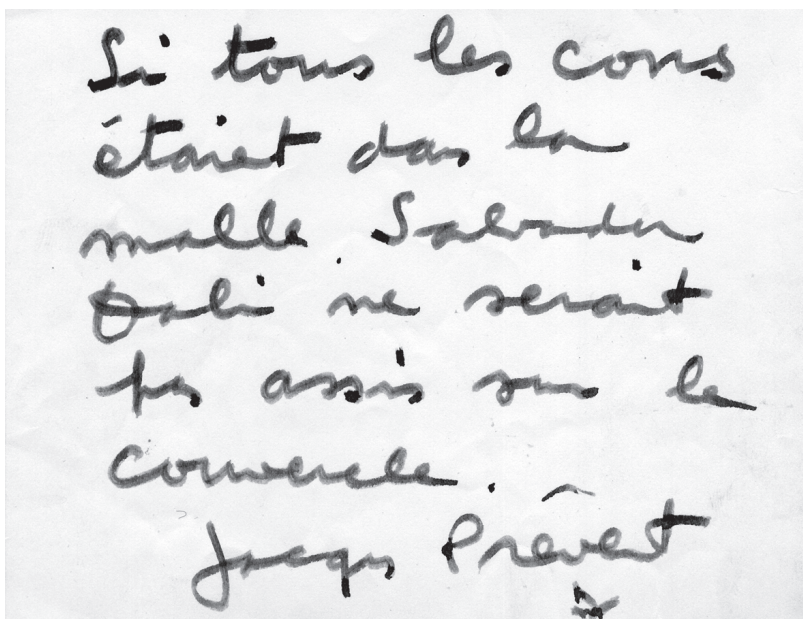 Si tous les cons
étaiet das la
malle Salvador
Dali ne serait
pas assis sur le
couvercle.
Jacqs Prêvert